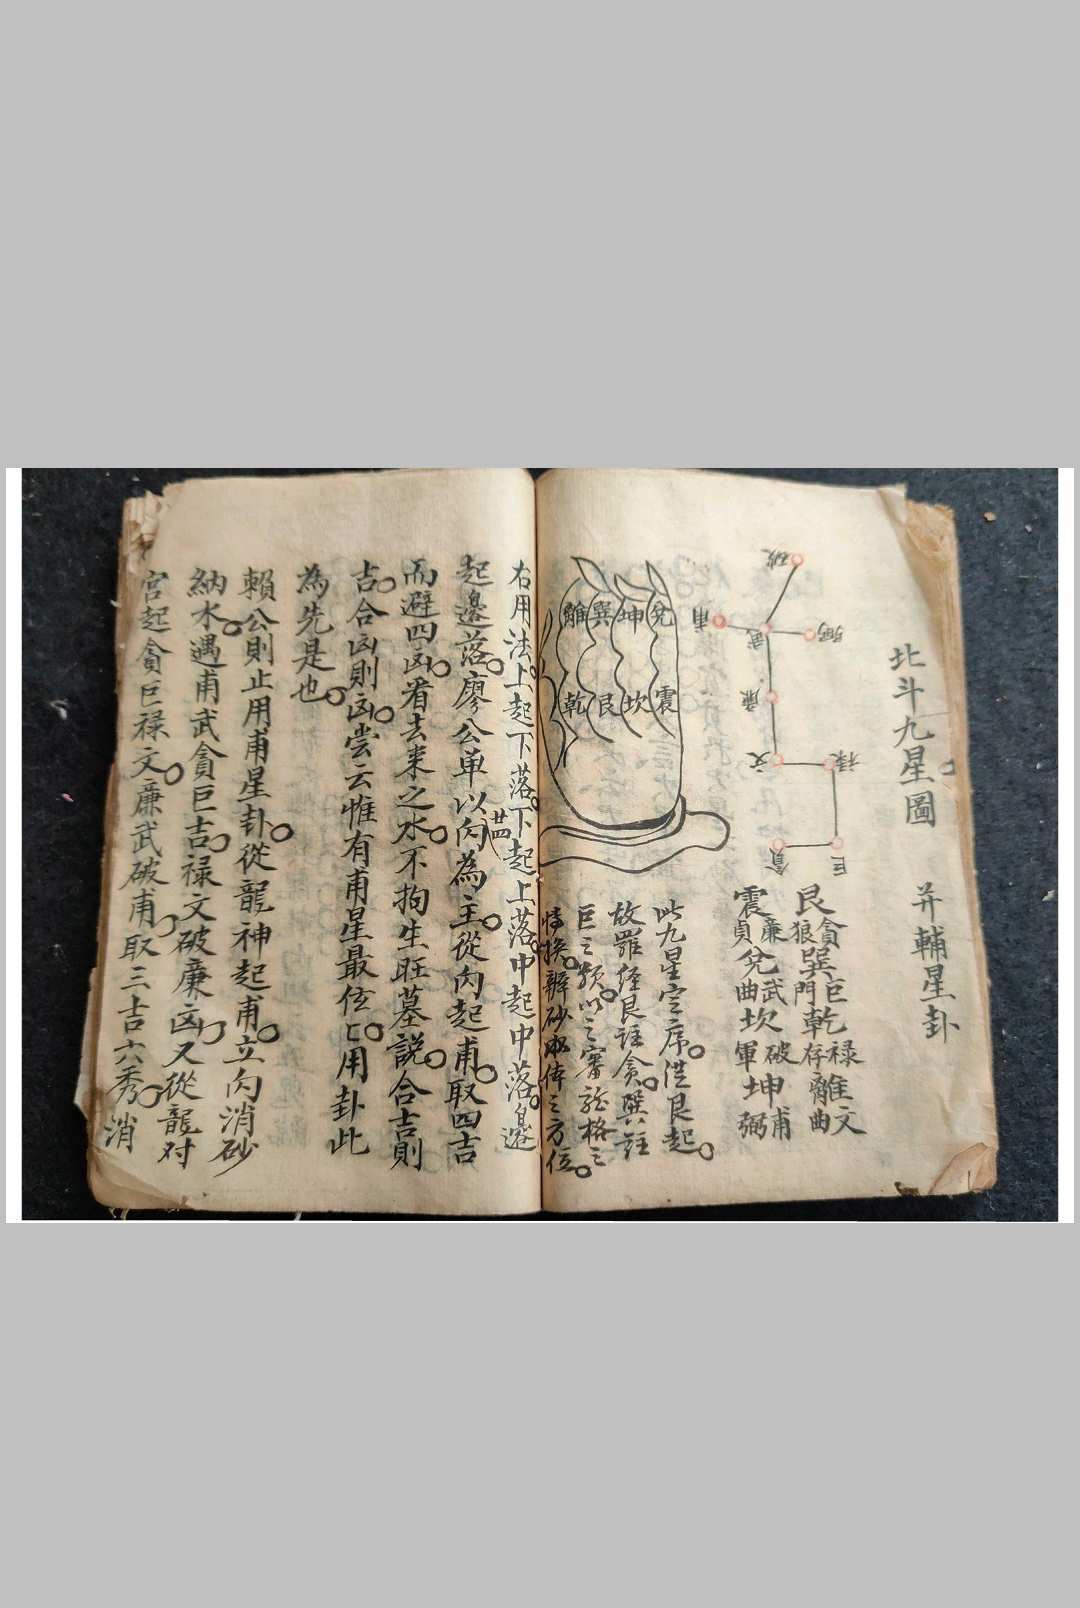 北斗九星圖 并輔星卦
破
甫 武 弼
廉
文 祿
貪 巨
艮貪狼巽巨門乾祿存離文曲
震廉貞兌武曲坎破軍坤甫弼
兌坤巽離
震坎艮乾
此九星定序從艮起
故羅經艮註貪巽註
巨之類以之審龍格之
特換辦砂水倖之方位
右用法上起下落下起上落中起中落邊
起邊落廖公单以向為主從向起甫取四吉
廿四
而避四凶看去来之水不拘生旺墓説合吉則
吉合凶則凶嘗云惟有甫星最位匕用卦此
為先是也
賴公則止用甫星卦從龍神起甫立向消砂
納水遇甫武貪巨吉祿文破廉凶又從龍对
宮起貪巨禄文廉武破甫取三吉六秀消